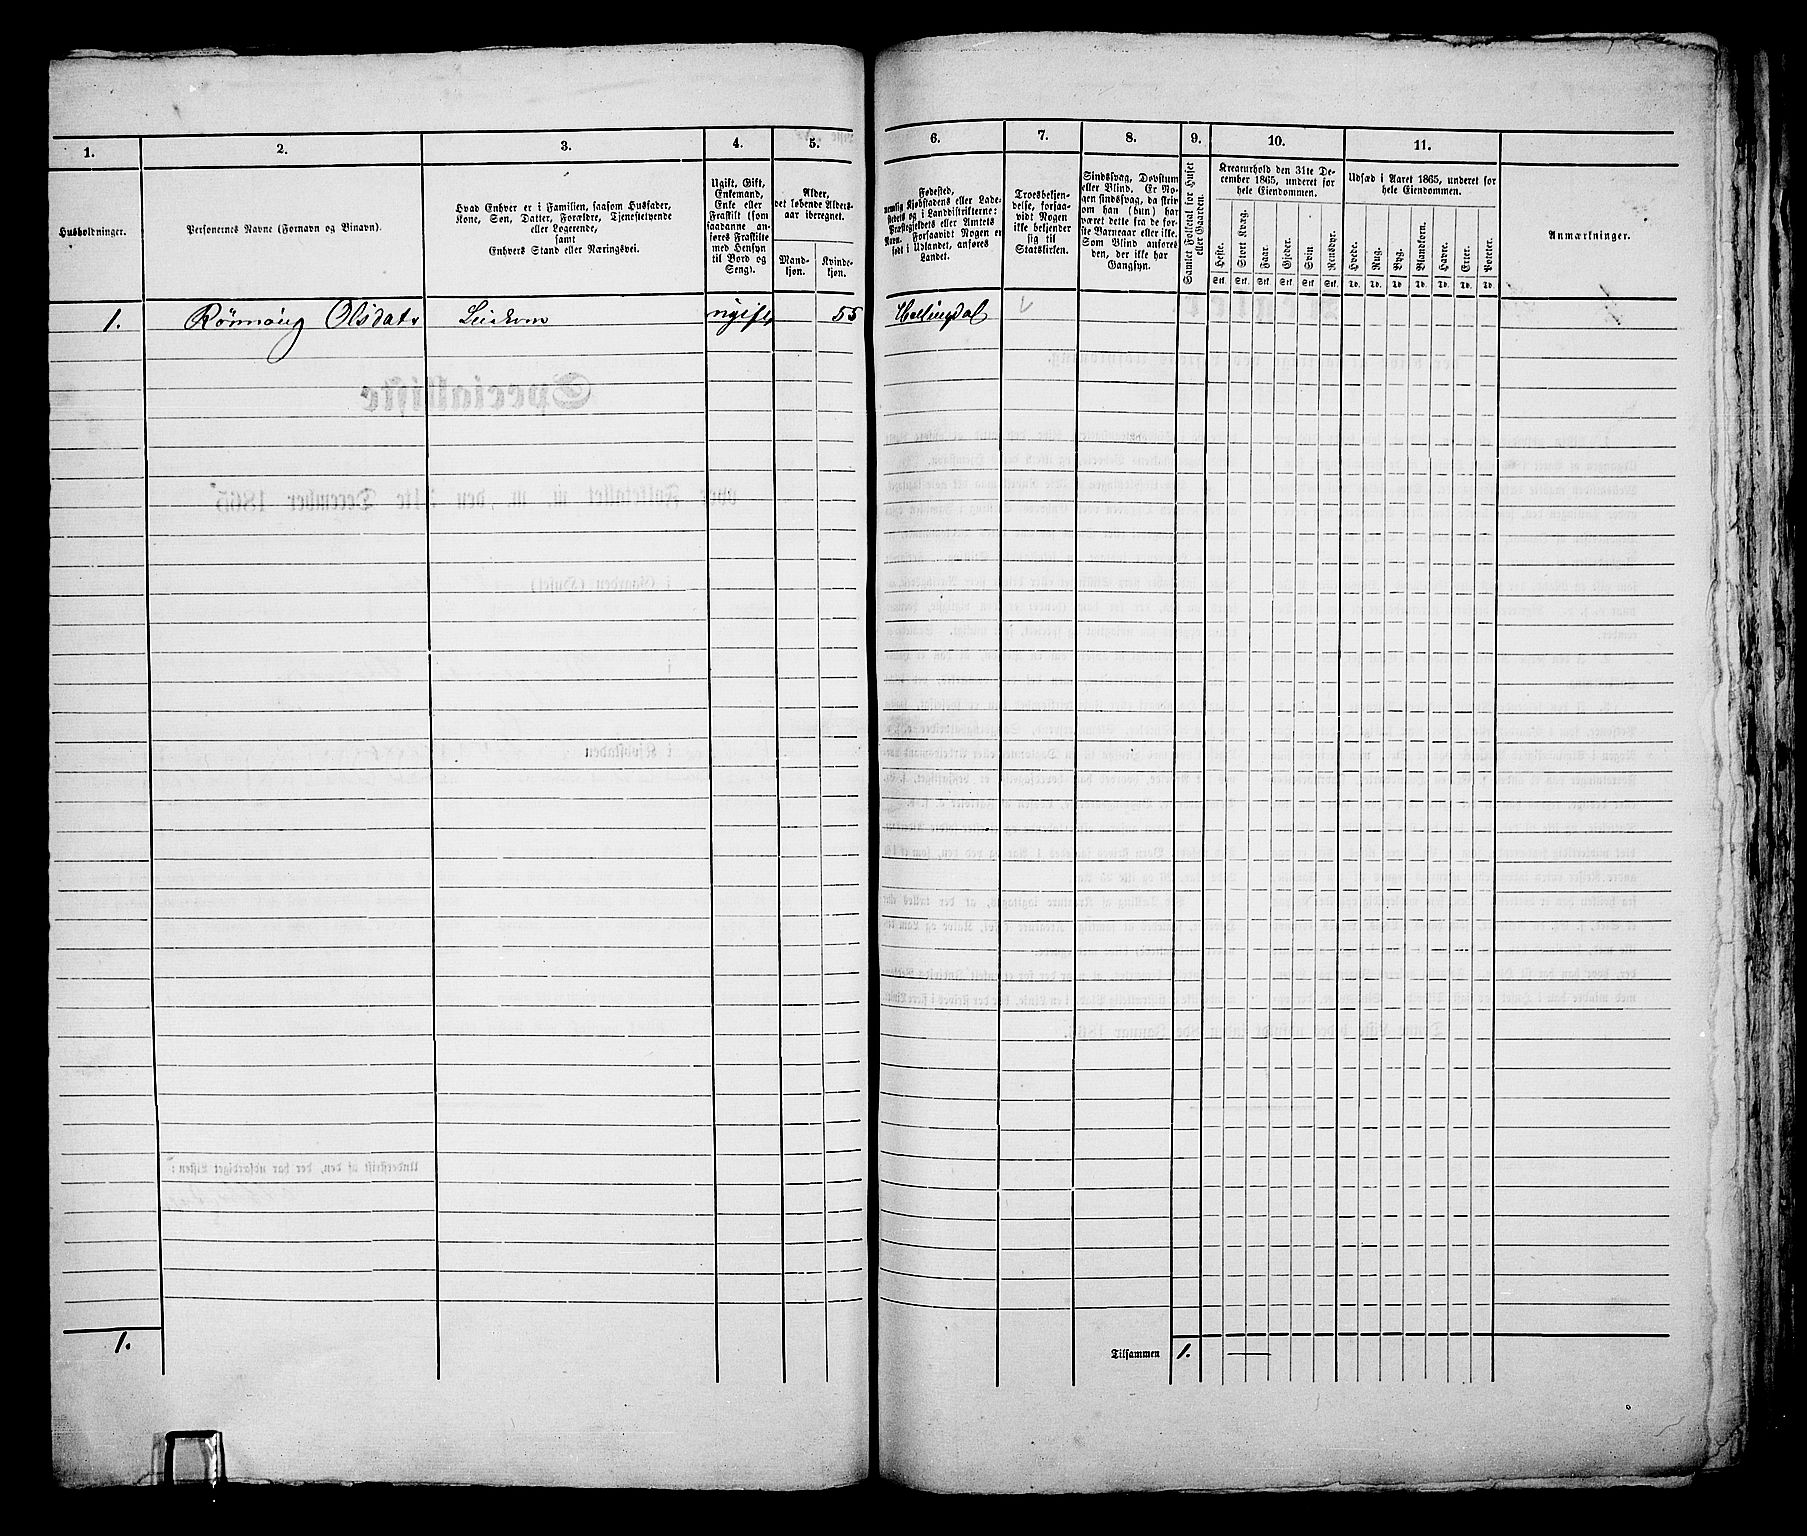 1. 2. 3. 4. 5. 6. 7. 8. 9. 10. 11.
Husholdninger.
Personernes Navne (Fornavn og Binavn).
Hvad Enhver er i Familien, saasom Husfader,
Kone, Søn, Datter, Forældre, Tjenestetyende
eller Logerende,
samt
Enhvers Stand eller Næringsvei.
Ugift, Gift,
Enkemand,
Enke eller
Fraskilt (som
saadanne an-
føres Fraskilte
med Hensyn
til Bord og
Seng).
Alder,
det løbende Alders-
aar iberegnet.
Mand-
kjøn.
Kvinde-
kjøn.
Fødested,
nemlig Kjøbstadens eller Lade-
stedets og i Landdistrikterne:
Præstegjeldets eller Amtets
Navn. Forsaavidt Nogen er
født i Udlandet, anføres
Landet.
Troesbekjen-
delse, forsaa-
vidt Nogen
ikke bekjender
sig til
Statskirken.
Sindssvag, Døvstum
eller Blind. Er No-
gen sindssvag, da skriv
om han (hun) har
været dette fra de før-
ste Barneaar eller ikke.
Som Blind anføres
den, der ikke har
Gangsyn.
Samlet Folketal for Huset
eller Gaarden.
Kreaturhold den 31te De-
cember 1865, underet før
hele Eiendommen.
Heste. Stort Kvæg. Faar. Gjeder. Svin. Rensdyr.
Stk. Stk. Stk. Stk. Stk. Stk.
Udsæd i Aaret 1865, underet for
hele Eiendommen.
Hvede. Rug. Byg. Blandkorn. Havre. Erter. Poteter.
Td. Td. Td. Td. Td. Td. Td.
Anmærkninger.
1. Rønnoug Olsdatr ugift 55 Hallingdal
1.
Tilsammen 1.